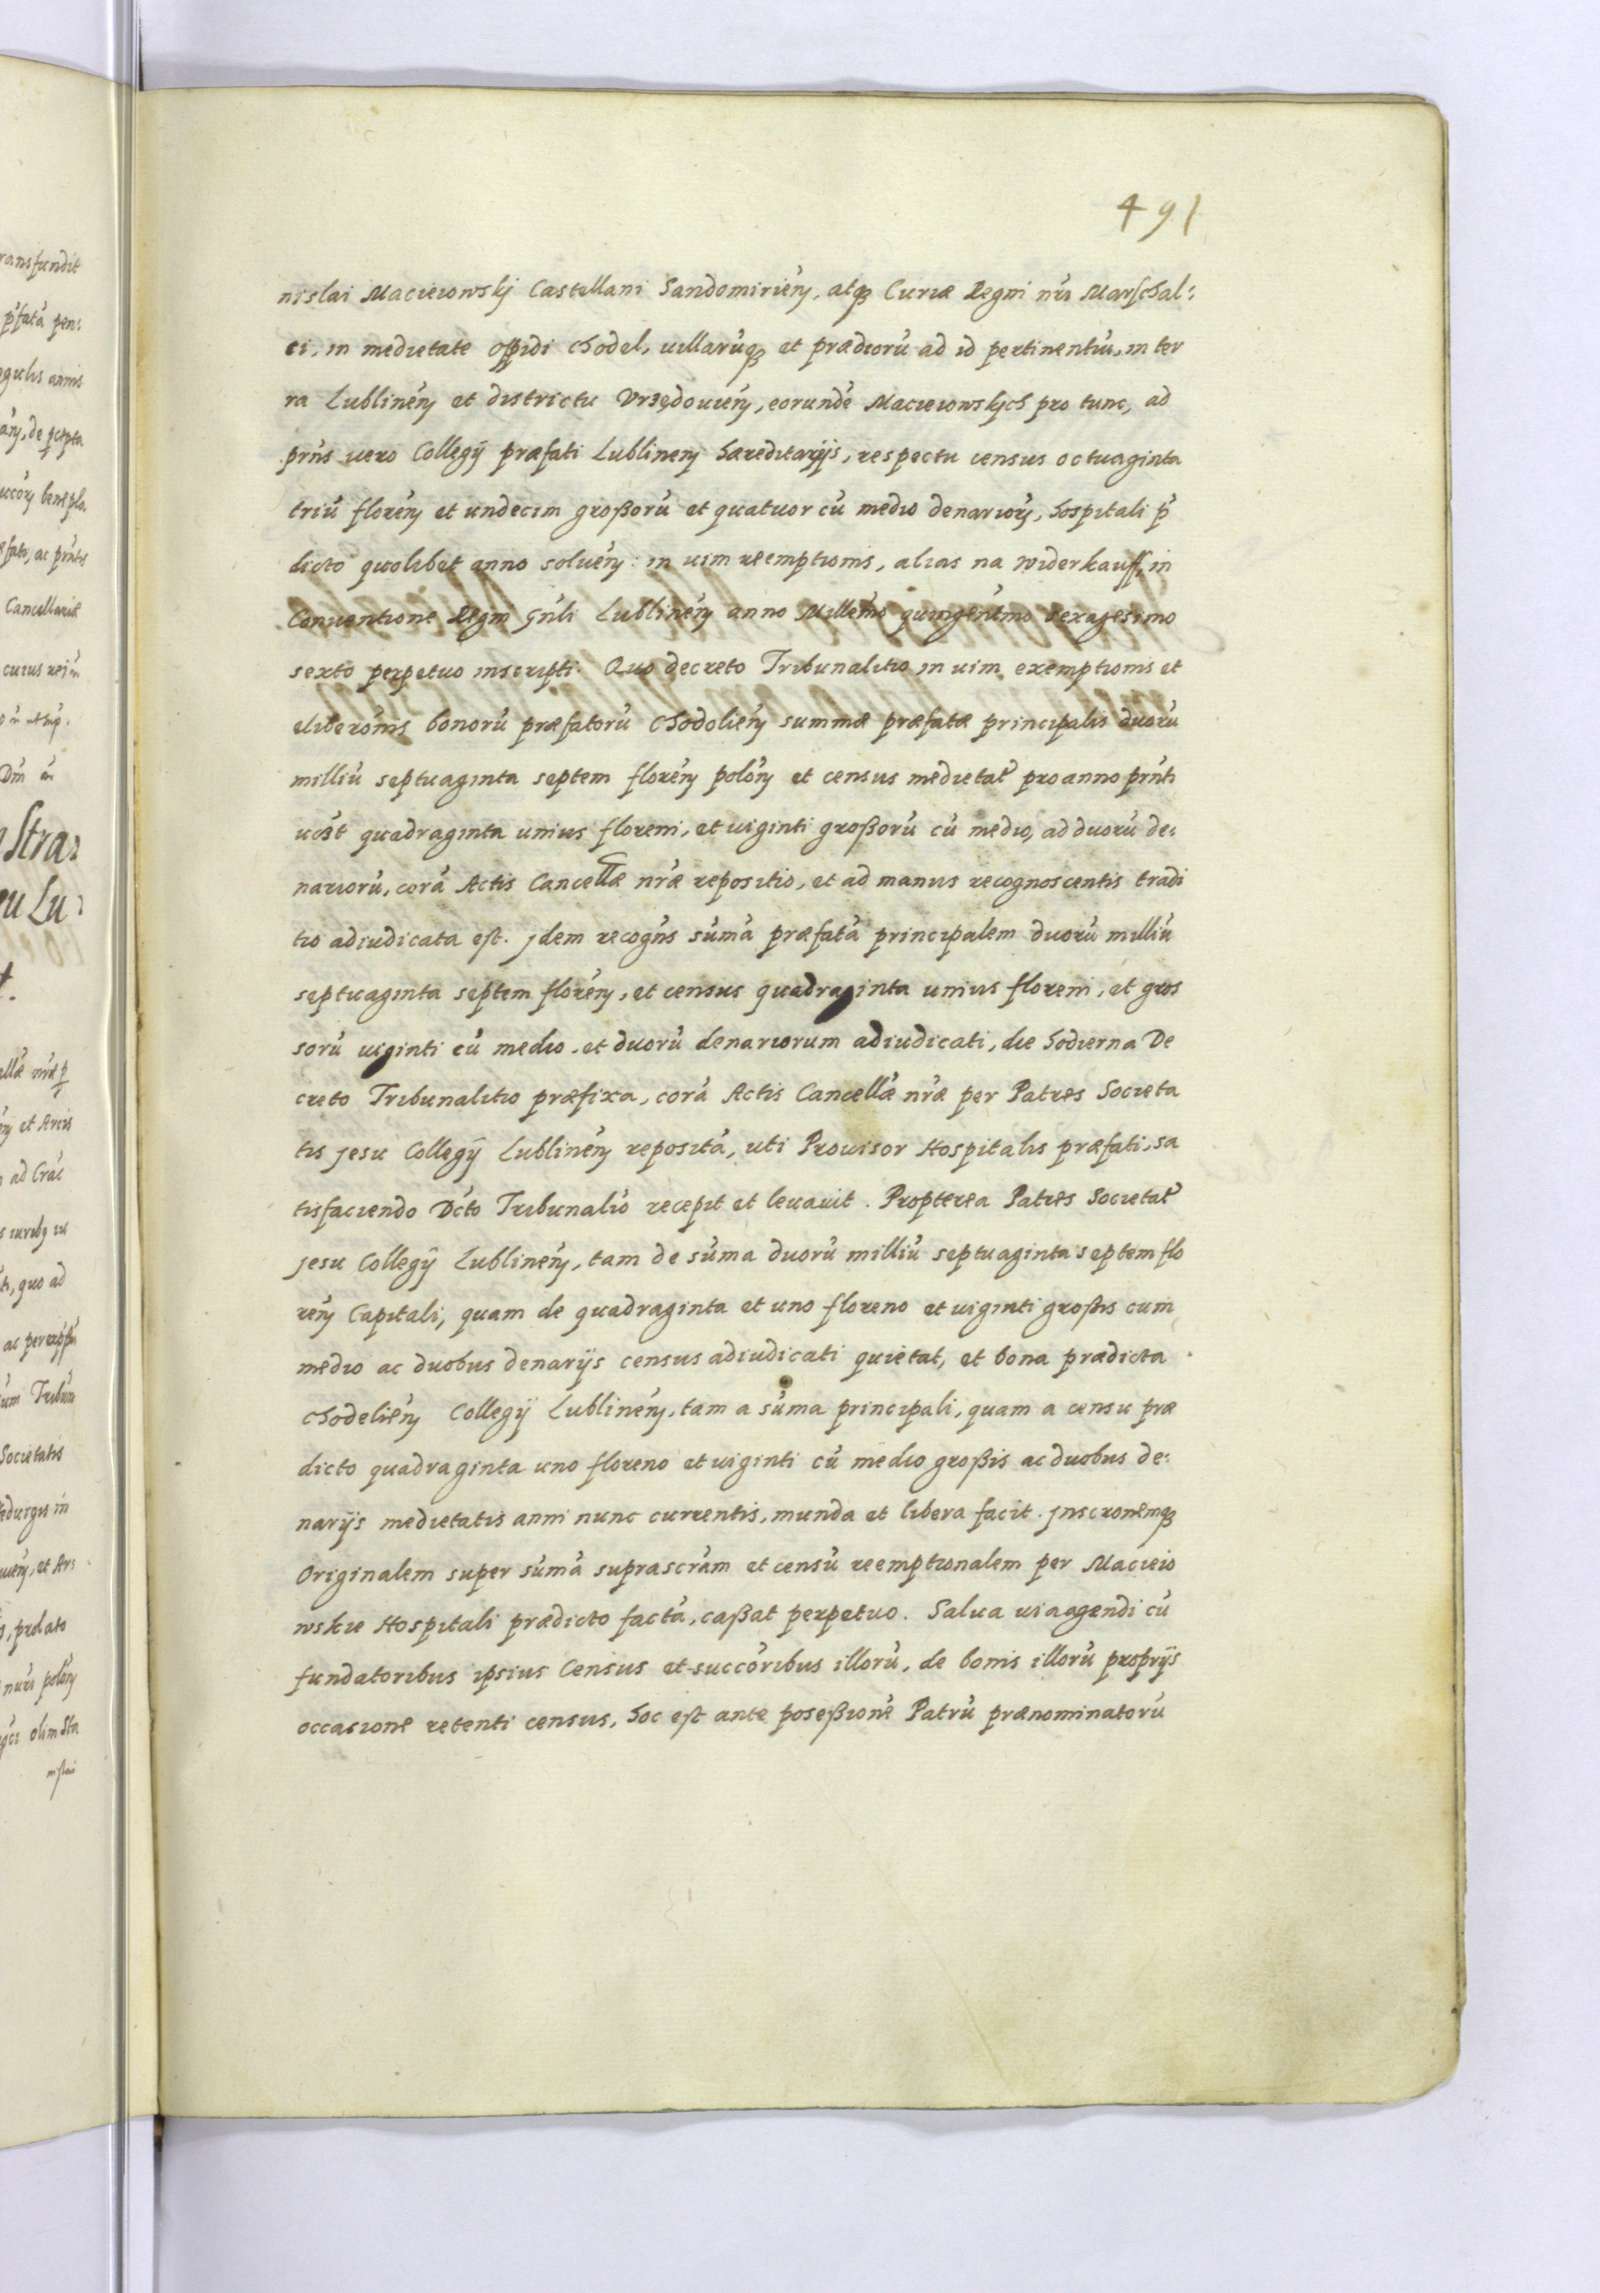 491
nislai Macieiowskj Castellani Sandomirień, atq3 Curiæ Regni nr̃i Marschal:
ci, in medietate oppidi Chodel, villarũq3 et prædiorũ ad id pertinentiũ, in ter
ra Lublineń et districtu Vrzędovień, eorundẽ Macieiowskjch pro tunc, ad
prñs vero Collegÿ præfati Lublineń hæreditarijs, respectu census octuaginta
triũ floreń et undecim großorũ et quatuor cũ medio denarioꝝ, hospitali p̃
dicto quolibet anno solueń: in uim reemptionis, alias na widerkauff, in
Conventione Regni gñli Lublineń anno Millẽmo quingentmo sexagesimo
sexto perpetuo inscripti. Quo decreto Tribunalitio in uim exemptionis et
eliberõnis bonorũ præfatorũ Chodolień summæ præfatæ principalis duorũ
milliũ septuaginta septem floreń poloń et census medietat' pro anno prñti
vcz̃t quadraginta unius floreni, et viginti großorũ cũ medio, ad duorũ de:
nariorũ, corã Actis Cancellæ nr̃æ repositio, et ad manus recognoscentis tradi
tio adiudicata est. Jdem recogñs sũmã præfatã principalem duorũ milliũ
septuaginta septem floreń, et census quadraginta unius floreni, et gros
sorũ viginti cũ medio et duorũ denariorum adiudicati, die hodierna De
creto Tribunalitio præfixa, corã Actis Cancellæ nr̃æ per Patres Societa
tis Jesu Collegÿ Lublineń repositã, uti Prouisor Hospitalis præfati, sa
tisfaciendo Dcto Tribunalio recepit et leuauit. Propterea Patres Societat'
Jesu Collegÿ Lublineń, tam de sũma duorũ milliũ septuaginta septem flo
reń Capitali, quam de quadraginta et uno floreno et viginti großis cum
medio ac duobus denarijs census adiudicati quietat, et bona prædicta
Chodelień Collegÿ Lublineń, tam a sũma principali, quam a censu præ
dicto quadraginta uno floreno et viginti cũ medio großis ac duobus de:
narijs medietatis anni nunc currentis, munda et libera facit. Jnscronemq3
Originalem super sũmã suprascrãm et censũ reemptionalem per Macieio
wskie Hospitali prædicto factã, caßat perpetuo. Salua via agendi cũ
fundatoribus ipsius Census et succõribus illorũ, de bonis illorũ proprijs
occasione retenti census, hoc est ante poseßionẽ Patrũ prænominatorũ